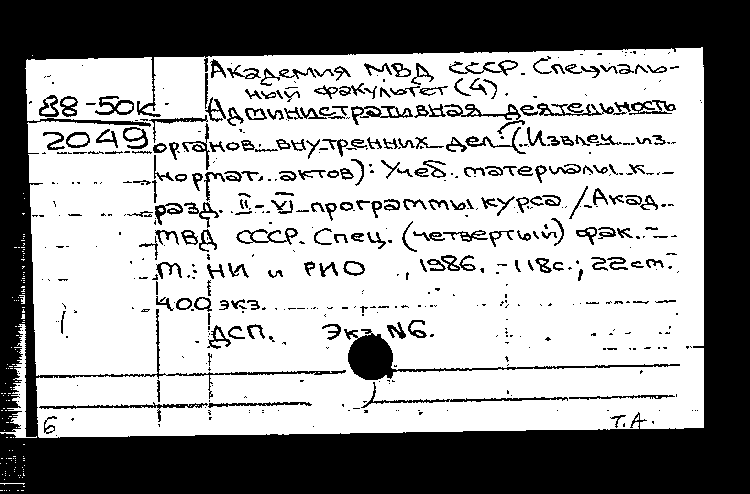 Академия МВД СССР. Специаль-
ный факультет (4).
88-50к
Административная деятельность
2049
органов внутренних дел: (Извлеч. из
нормат. актов): Учеб. материалы к
разд. II-VI программы курса / Акад.
МВД СССР. Спец. (четвертый) фак. -
М.: НИ и РИО , 1986. - 118с.; 22см.
400 экз.
ДСП. Экз. N6.
б
Т.А.